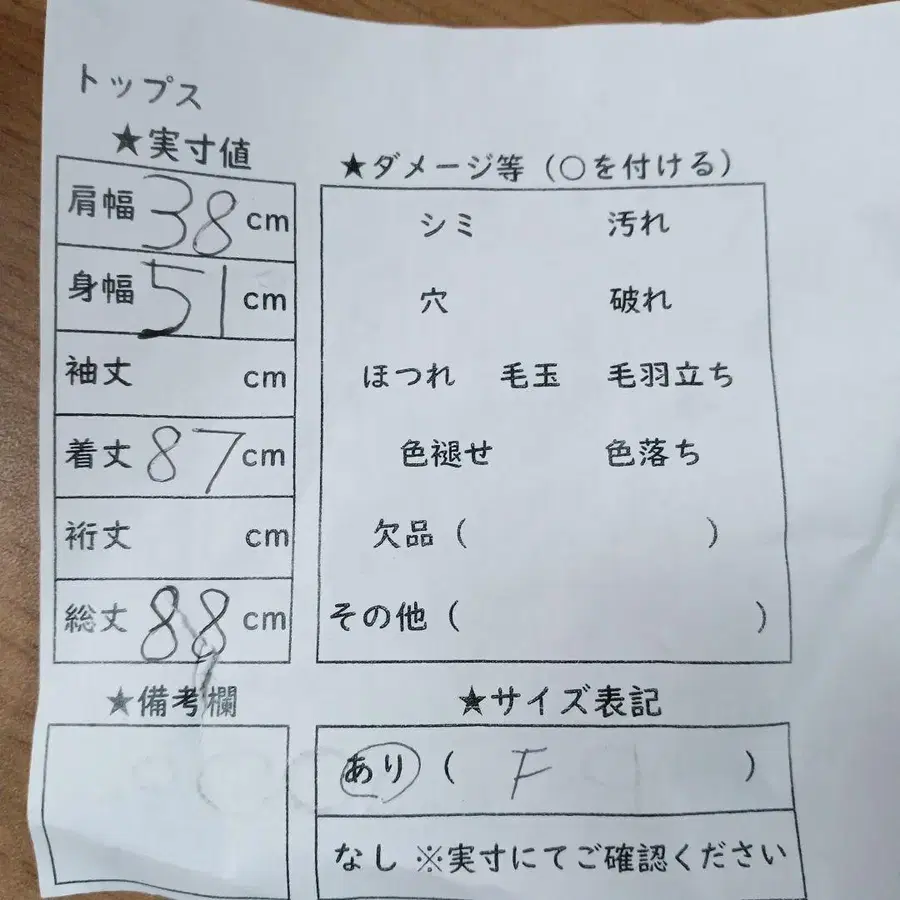 トップス
★実寸値
肩幅 38 cm
身幅 51 cm
袖丈 cm
着丈 87 cm
裄丈 cm
総丈 88 cm
★ダメージ等（○を付ける）
シミ 汚れ
穴 破れ
ほつれ 毛玉 毛羽立ち
色褪せ 色落ち
欠品（ ）
その他（ ）
★備考欄
★サイズ表記
あり（ F ）
なし ※実寸にてご確認ください